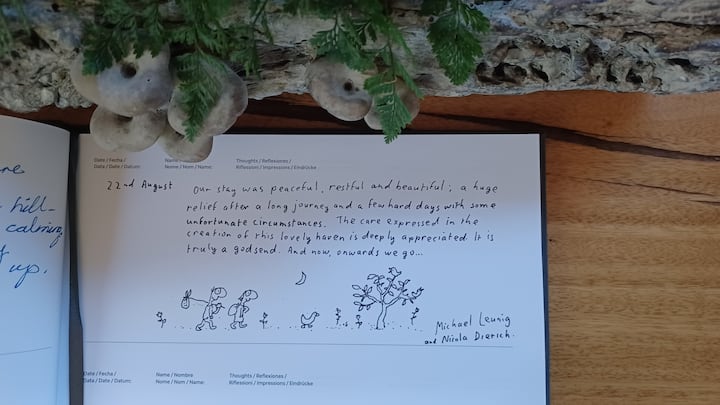 ne
hill-
calming
up.
Date / Fecha /
Data / Date / Datum:
Name /
Nome / Nom / Name:
Thoughts / Reflexiones /
Riflessioni / Impressions / Eindrücke
22nd August
Our stay was peaceful, restful and beautiful; a huge
relief after a long journey and a few hard days with some
unfortunate circumstances. The care expressed in the
creation of this lovely haven is deeply appreciated. It is
truly a godsend. And now, onwards we go...
Michael Leunig
and Nicola Dierich.
Date / Fecha /
Data / Date / Datum:
Name / Nombre
Nome / Nom / Name:
Thoughts / Reflexiones /
Riflessioni / Impressions / Eindrücke